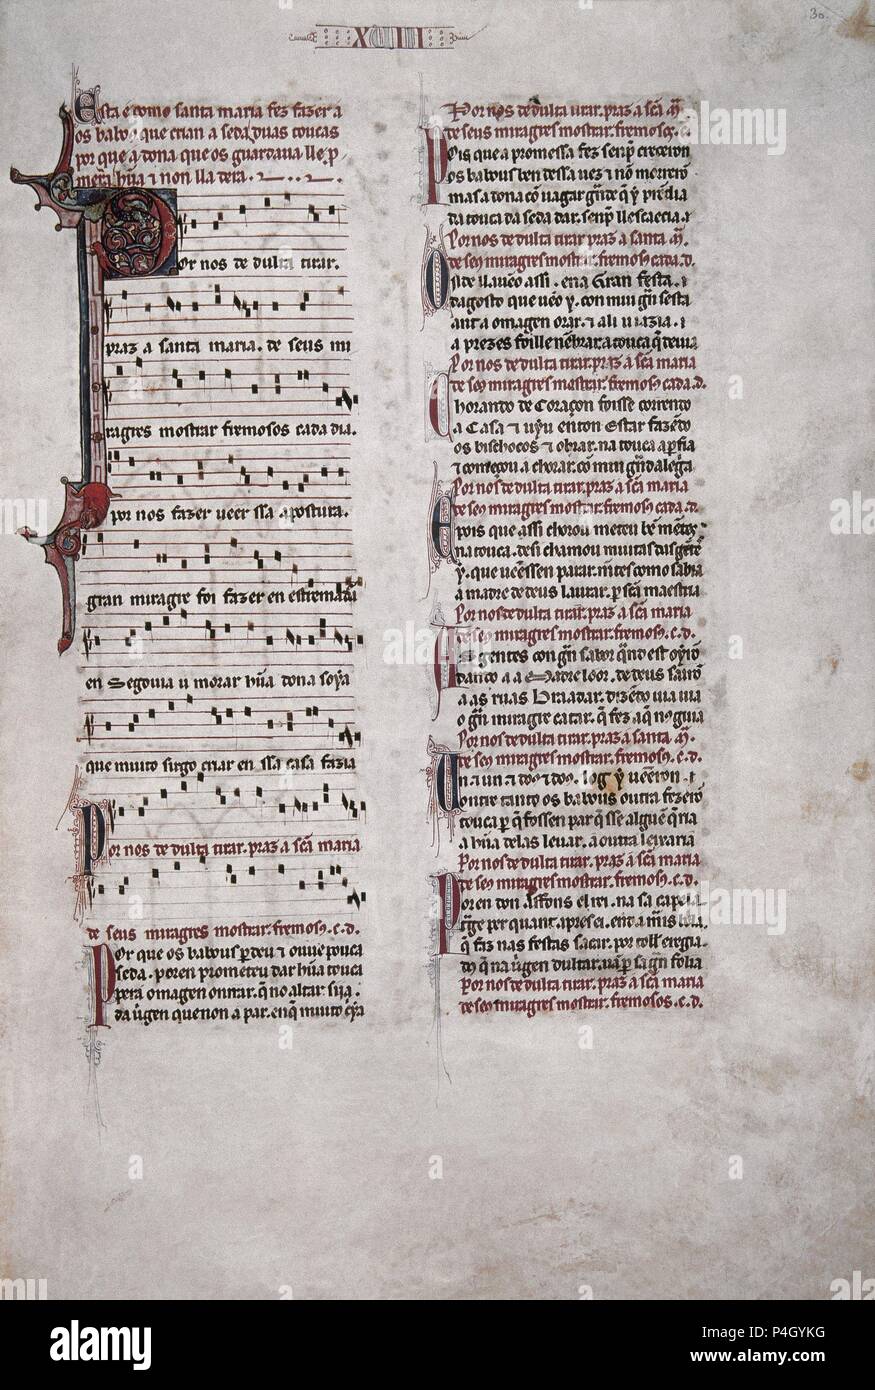 XVIII
30.
Esta é como santa maria fez fazer a
os babous que crian a seda duas toucas
por que a dona que os guardaua lle ꝓ
metera hũa ⁊ non lla dera.
Por nos de dulta tirar.
praz a santa maria. de seus mi
ragres mostrar fremosos cada dia.
por nos fazer veer ssa apostura.
gran miragre foi fazer en estremadu
en Segouia u morar hũa dona soya
que muito sirgo criar en ssa casa fazia
Por nos de dulta tirar. praz a scã maria
de seus miragres mostrar. fremosꝯ. c. d.
Por que os babous ꝑdeu ⁊ ouue pouca
seda. poren prometeu dar hũa touca
pera omagen onrrar. q̃ no altar siia.
da uirgen que non a par. en q̃ muito crya
Por nos de dulta tirar. praz a scã m̃.
de seus miragres mostrar. fremosꝯ. c.
Pois que a promessa fez senpꝛ creceron
os babous ben dessa uez ⁊ nõ morrerõ
mas a dona cõ uagar grãde q̃ y prendia
da touca da seda dar. senpꝛ ll escaecia.
Por nos de dulta tirar praz a santa m̃.
de seꝯ miragres mostrar. fremosꝯ cada. d.
Onde ll aueo assi. ena Gran festa.
dagosto que ueo y. con mui grã sesta
ant a omagen orar. ⁊ ali u iazia.
a prezes foi lle nenbrar. a touca q̃ deuia
Por nos de dulta tirar. praz a scã maria
de seꝯ miragres mostrar. fremosꝯ cada. d.
Chorando de Coraçon foisse correndo
a Casa ⁊ uyu enton Estar fazẽdo
os bischocos ⁊ obrar. na touca a perfia
⁊ começou a chorar. cõ mui grã dalegria
Por nos de dulta tirar. praz a scã maria
de seꝯ miragres mostrar. fremosꝯ cada. d.
E pois que assi chorou meteu bẽ mẽtes
na touca. desi chamou muitas das gẽtes
y. que ueessen parar. mẽtes como sabia
a madre de deus laurar. ꝑ scã maestria
Por nos de dulta tirar. praz a scã maria
de seꝯ miragres mostrar. fremosꝯ. c. d.
As gentes con grã sabor. quãd est oyrõ
dando a a Madre loor. de deus sairõ
a as ruas braadar. dizẽdo uia uia
o grã miragre catar. q̃ fez a q̃ nos guia
Por nos de dulta tirar. praz a santa m̃.
de seꝯ miragres mostrar. fremosꝯ. c. d.
Un a un ⁊ dous ⁊ dous. log y uẽeron.
ontre tanto os babous outra fezerõ
touca ꝑ q̃ fossen par q̃ sse alguẽ q̃ria
a hũa delas leuar. a outra leixaria
Por nos de dulta tirar. praz a scã maria
de seꝯ miragres mostrar. fremosꝯ. c. d.
Poren don Affons el rei. na sa capela
trage per quant apres ei. end a mais bela.
q̃ faz nas festas sacar. por toller eregia
dos q̃ na uirgen dultar. uã ꝑ sa grã folia
Por nos de dulta tirar. praz a scã maria
de seꝯ miragres mostrar. fremosos. c. d.
a alamy stock photo
Image ID: P4GYKG
www.alamy.com